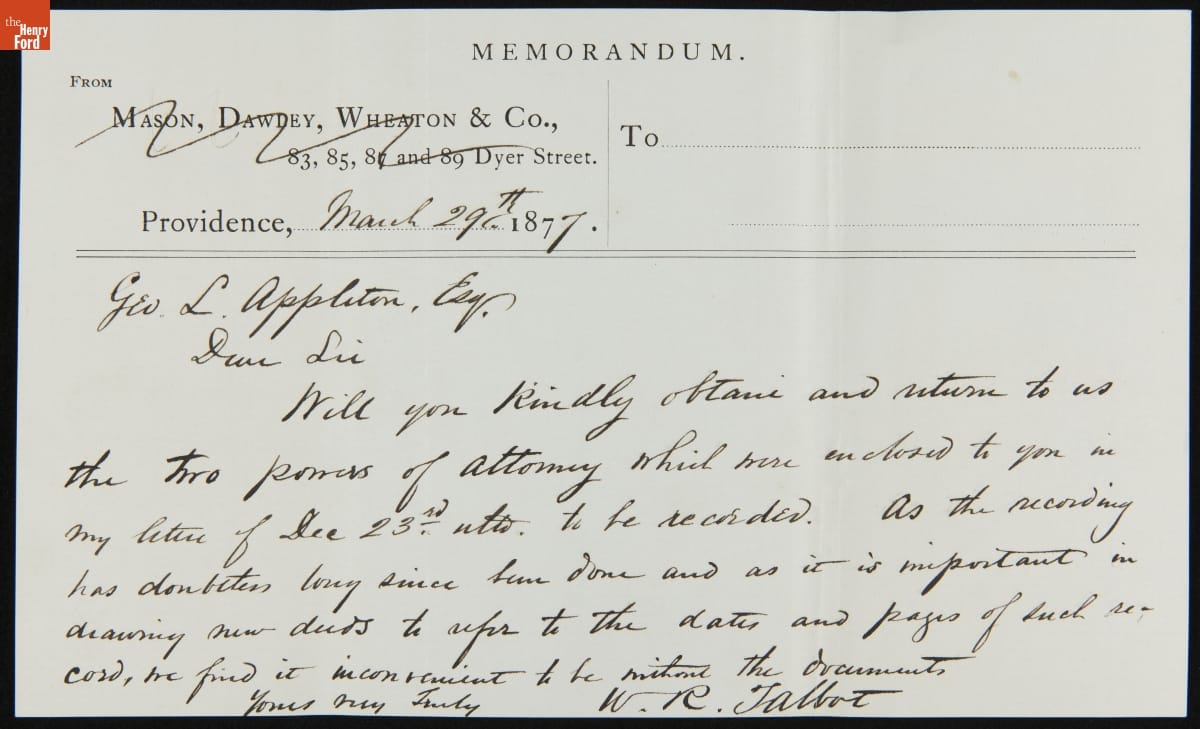 the Henry Ford
MEMORANDUM.
FROM
MASON, DAWLEY, WHEATON & CO.,
83, 85, 87 and 89 Dyer Street.
To
Providence, March 29th 1877.
Geo. L. Appleton, Esq.
Dear Sir
Will you kindly obtain and return to us
the two powers of attorney which were enclosed to you in
my letter of Dec 23rd ulto. to be recorded. As the recording
has doubtless long since been done and as it is important in
drawing new deeds to refer to the dates and pages of such re-
cord, we find it inconvenient to be without the documents
Yours very truly W. R. Talbot